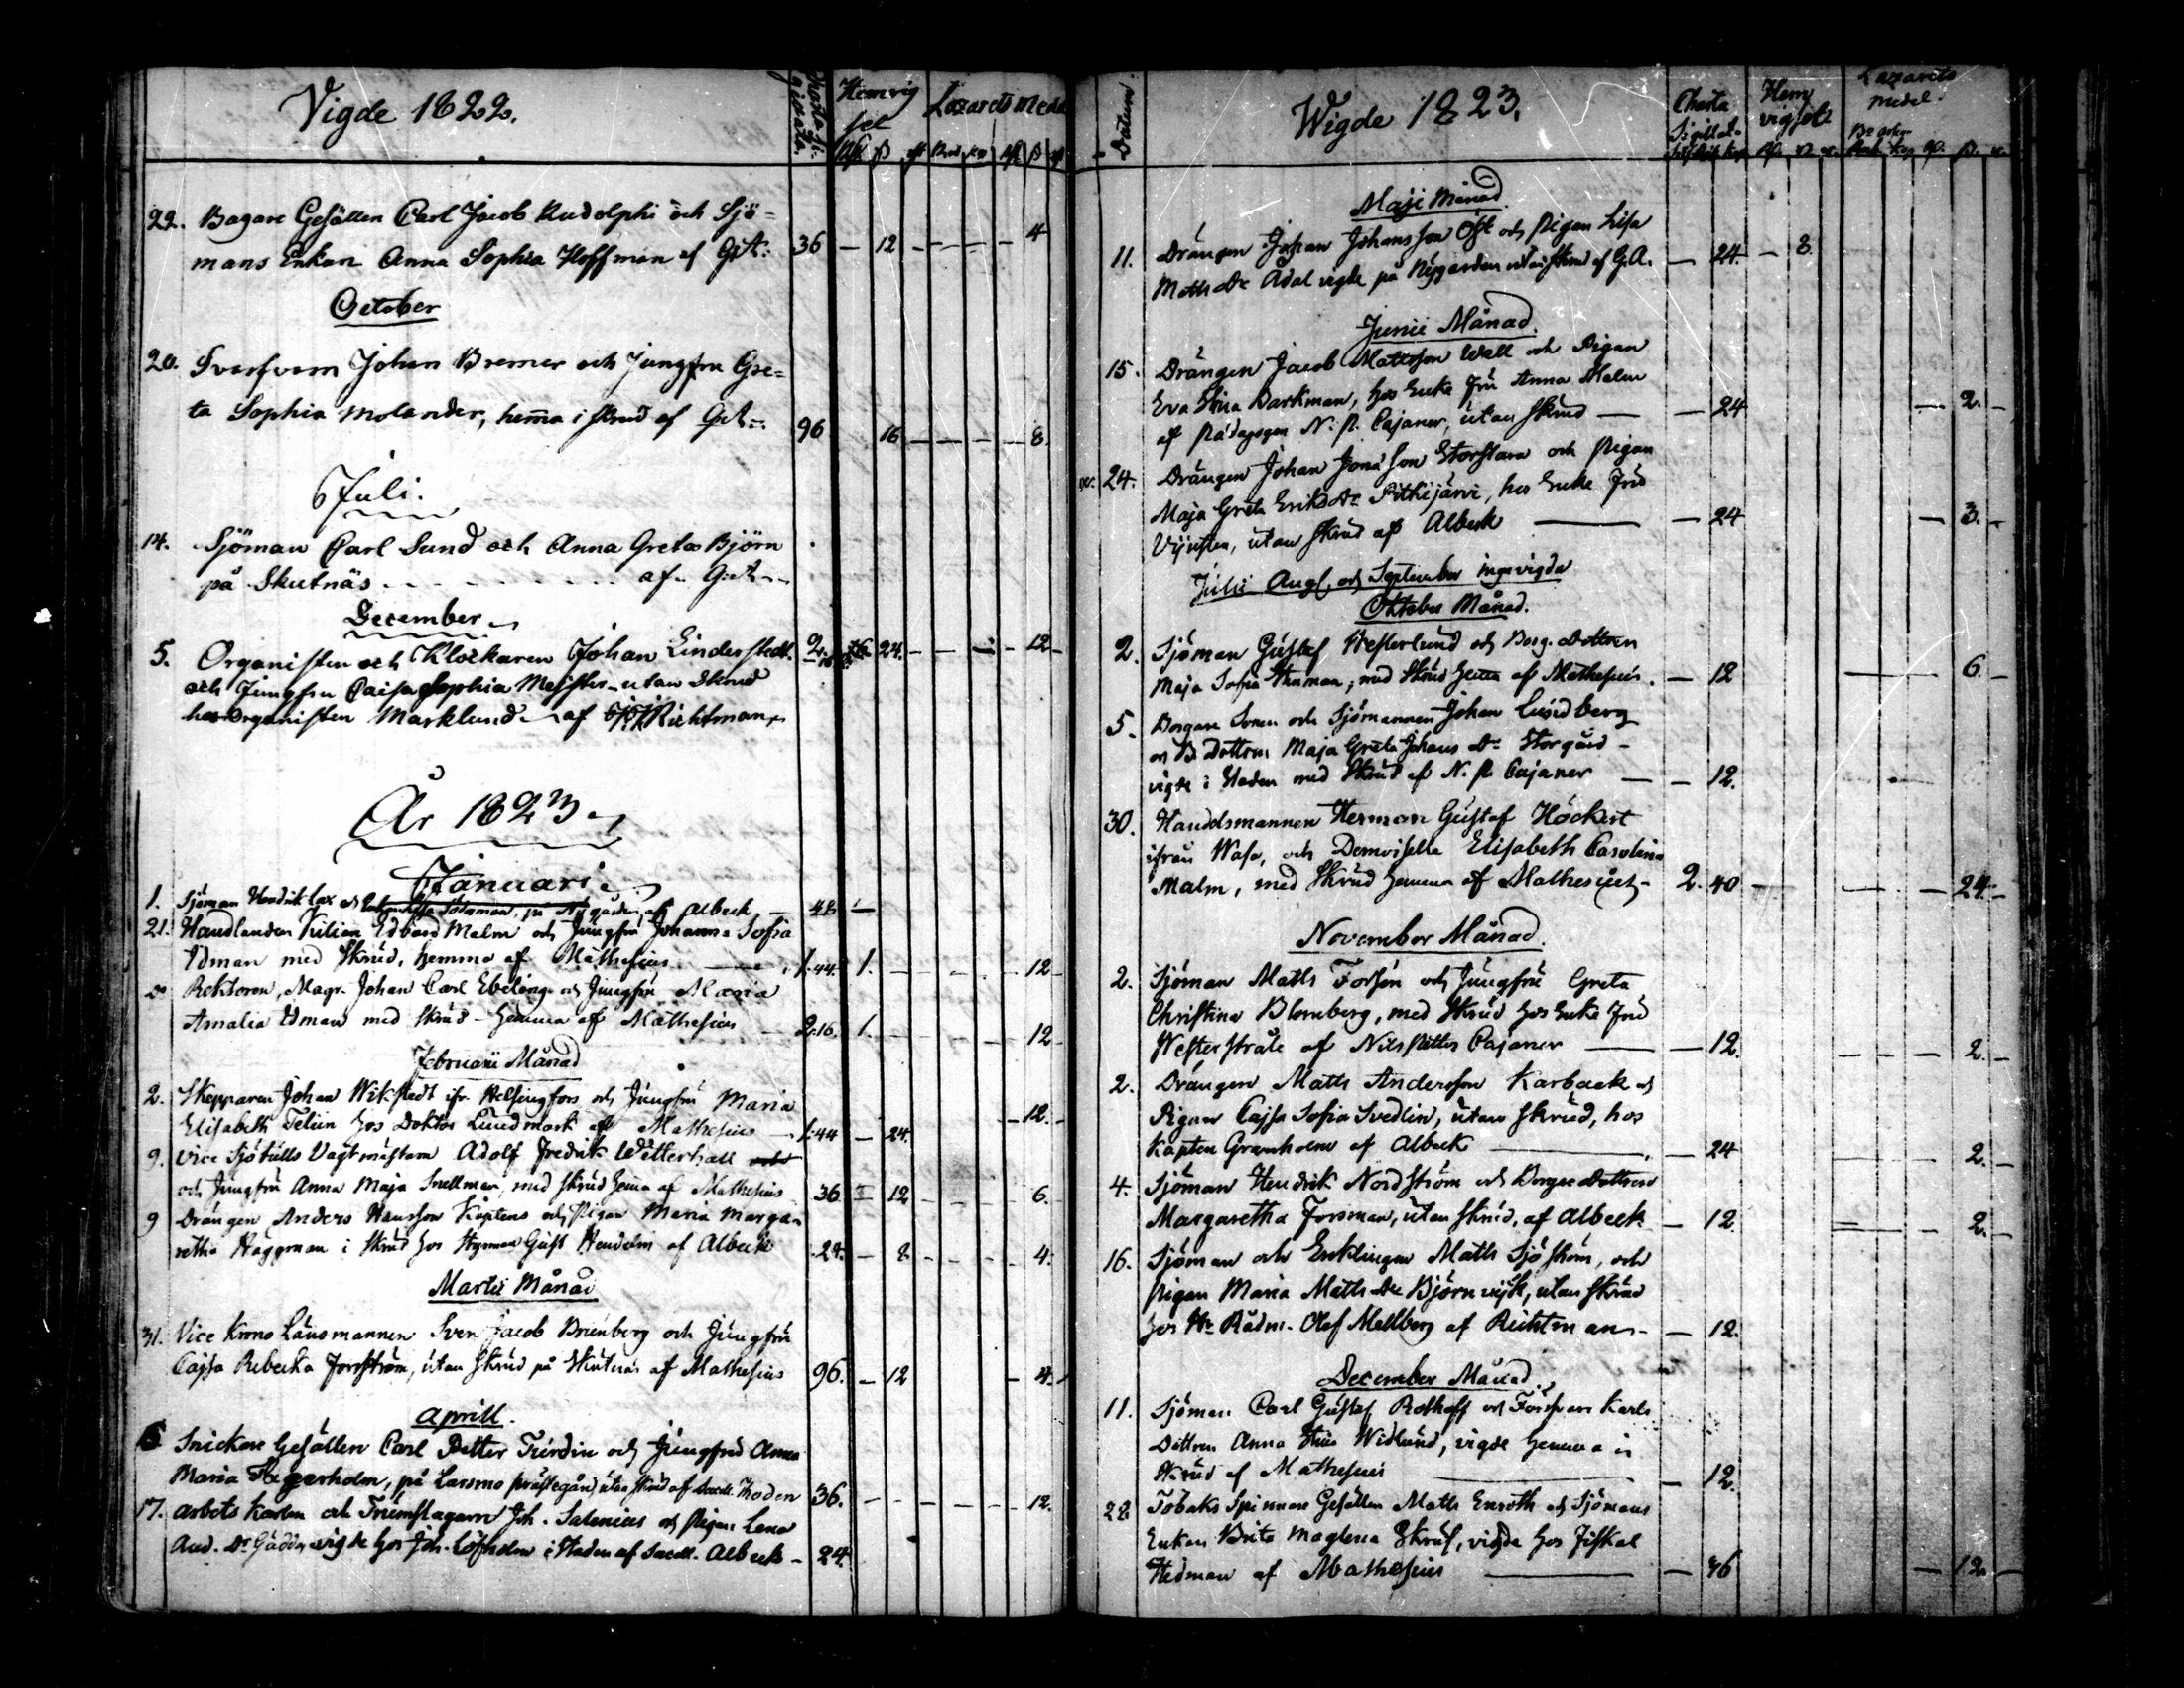 Vigde 1822.
Hemvig
sel
Lazarets Medel
22. Bagare Gesällen Carl Jacob Rudolphi och Sjö=
mans Enkan Anna Sophia Hoffman af G:A: 36 — 12 — — — — 4
October
20. Svarfvarn Johan Bremer och Jungfru Gre=
ta Sophia Molander, hema i skrud af G:A:. 96 16 — — — — 8
Juli.
14. Sjöman Carl Sund och Anna Greta Björn
på Skutnäs - - - - - - af G:A:
December
5. Organisten och Klockaren Johan Linderstedt. 24. — — — — 12
och Jungfru Caisa Sophia Meister utan Skrud
hos Organisten Marklund af Richtman
År 1823
Januari
1. Sjöman Hendrik Lax och på Nygården af Albeck — 48 —
21. Handlanden Kilian Edvard Malm och Jungfru Johanna Sofia
Edman med Skrud, hemma af Mathesius — 1.44. 1. — — — 12
Do Rektoren, Magr. Johan Carl Ebeling och Jungfru Maria
Amalia Edman med Skrud - hemma af Mathesius — 2.16. 1. — — — 12
Februarii Månad
2. Skepparen Johan Wikstedt ifr. Helsingfors och Jungfru Maria
Elisabeth Telin hos Doktor Lundmark af Mathesius — 1.44 — 24. — 12.
9. Vice Sjötulls Vagtmästarn Adolf Fredrik Wetterhall
och Jungfru Anna Maja Snellman, med skrud hema af Mathesius 36. 12 — — — 6.
9 Drängen Anders Hansson Kaptens och Pigan Maria Marga-
retha Häggman i Skrud hos Styrman Gust af Albeck 24. — 8. — — — 4.
Martii Månad
31. Vice Krono Länsmannen Sven Jacob Brunberg och Jungfru
Cajsa Rebecka Forsström, utan Skrud på Skutnäs af Mathesius 96. — 12 — 4.
Aprill.
6 Snickare Gesällen Carl Petter Turdin och Jungfru Anna
Maria Hagerholm, på Larsmo prästegård utan skrud af Sacell. Thoden 36. — — — — 12.
17. Arbets Karlen och Johan Salenius och Pigan Lena
And. Dr Gädda vigde hos Joh. Löfholm i Staden af Sacell. Albeck — 24.
Datum
Wigde 1823.
Charta
Sigillat.
Hem
vigsel
Lazarets
medel.
Maji Månad.
11. Drängen Johan Johansson Öst och Pigan Lisa
Matts Dr Ådal vigde på Nygården utan skrud af G.A. — 24. — 8.
Junii Månad.
15. Drängen Jacob Mattsson Wall och Pigan
Eva Stina Barkman, hos Enke fru Anna Malm
af Pædagogen N. P. Cajaner, utan Skrud — — 24 — 2. —
24. Drängen Johan Jonasson Storstara och Pigan
Maja Greta Eriks Dr Pithijärvi, hos Enke Fru
utan Skrud af Albeck — — 24 — 3. —
Julii Aug. och September inga vigda
Oktober Månad.
2. Sjöman Gustaf Westerlund och Borg. Dottren
Maja Sofia Stenman, med Skrud hema af Mathesius. — 12 — 6. —
5. Borgare Sonen och Sjömannen Johan Lundberg
och B. Dottren Maja Greta Johans Dr Storgård -
vigde i Staden med Skrud af N. P. Cajaner — — 12.
30. Handelsmannen Herman Gustaf Höckert
ifrån Wasa, och Demoiselle Elisabeth Carolina
Malm, med Skrud hemma af Mathesius — 2. 40 — — — 24 —
November Månad.
2. Sjöman Matts Forsén och Jungfru Greta
Christina Blomberg, med Skrud hos Enke Fru
Westerstråle af Nils Petter Cajaner — — 12. — — — 2. —
2. Drängen Matts Andersson Karback och
Pigan Cajsa Sofia Svedlin, utan skrud, hos
Kapten Granholm af Albeck — — 24 — 2. —
4. Sjöman Hendrik Nordström och Borgare Dottren
Margaretha Forsman, utan skrud, af Albeck — 12. — 2. —
16. Sjöman och Enklingen Matts Sjöström, och
Pigan Maria Matts Dr Björnvijk, utan Skrud
hos Hr Rådm. Olof Mellberg af Richtman — — 12.
December Månad.
11. Sjöman Carl Gustaf Rothoff och Försvars Karls
Dottren Anna Stina Widlund, vigde hemma i
Skrud af Mathesius — — 12.
22. Tobaks Spinnare Gesällen Matts Enroth och Sjömans
Enkan Brita Maglena Skruf, vigde hos Fiskal
Hedman af Mathesius — — 36 — 12 —